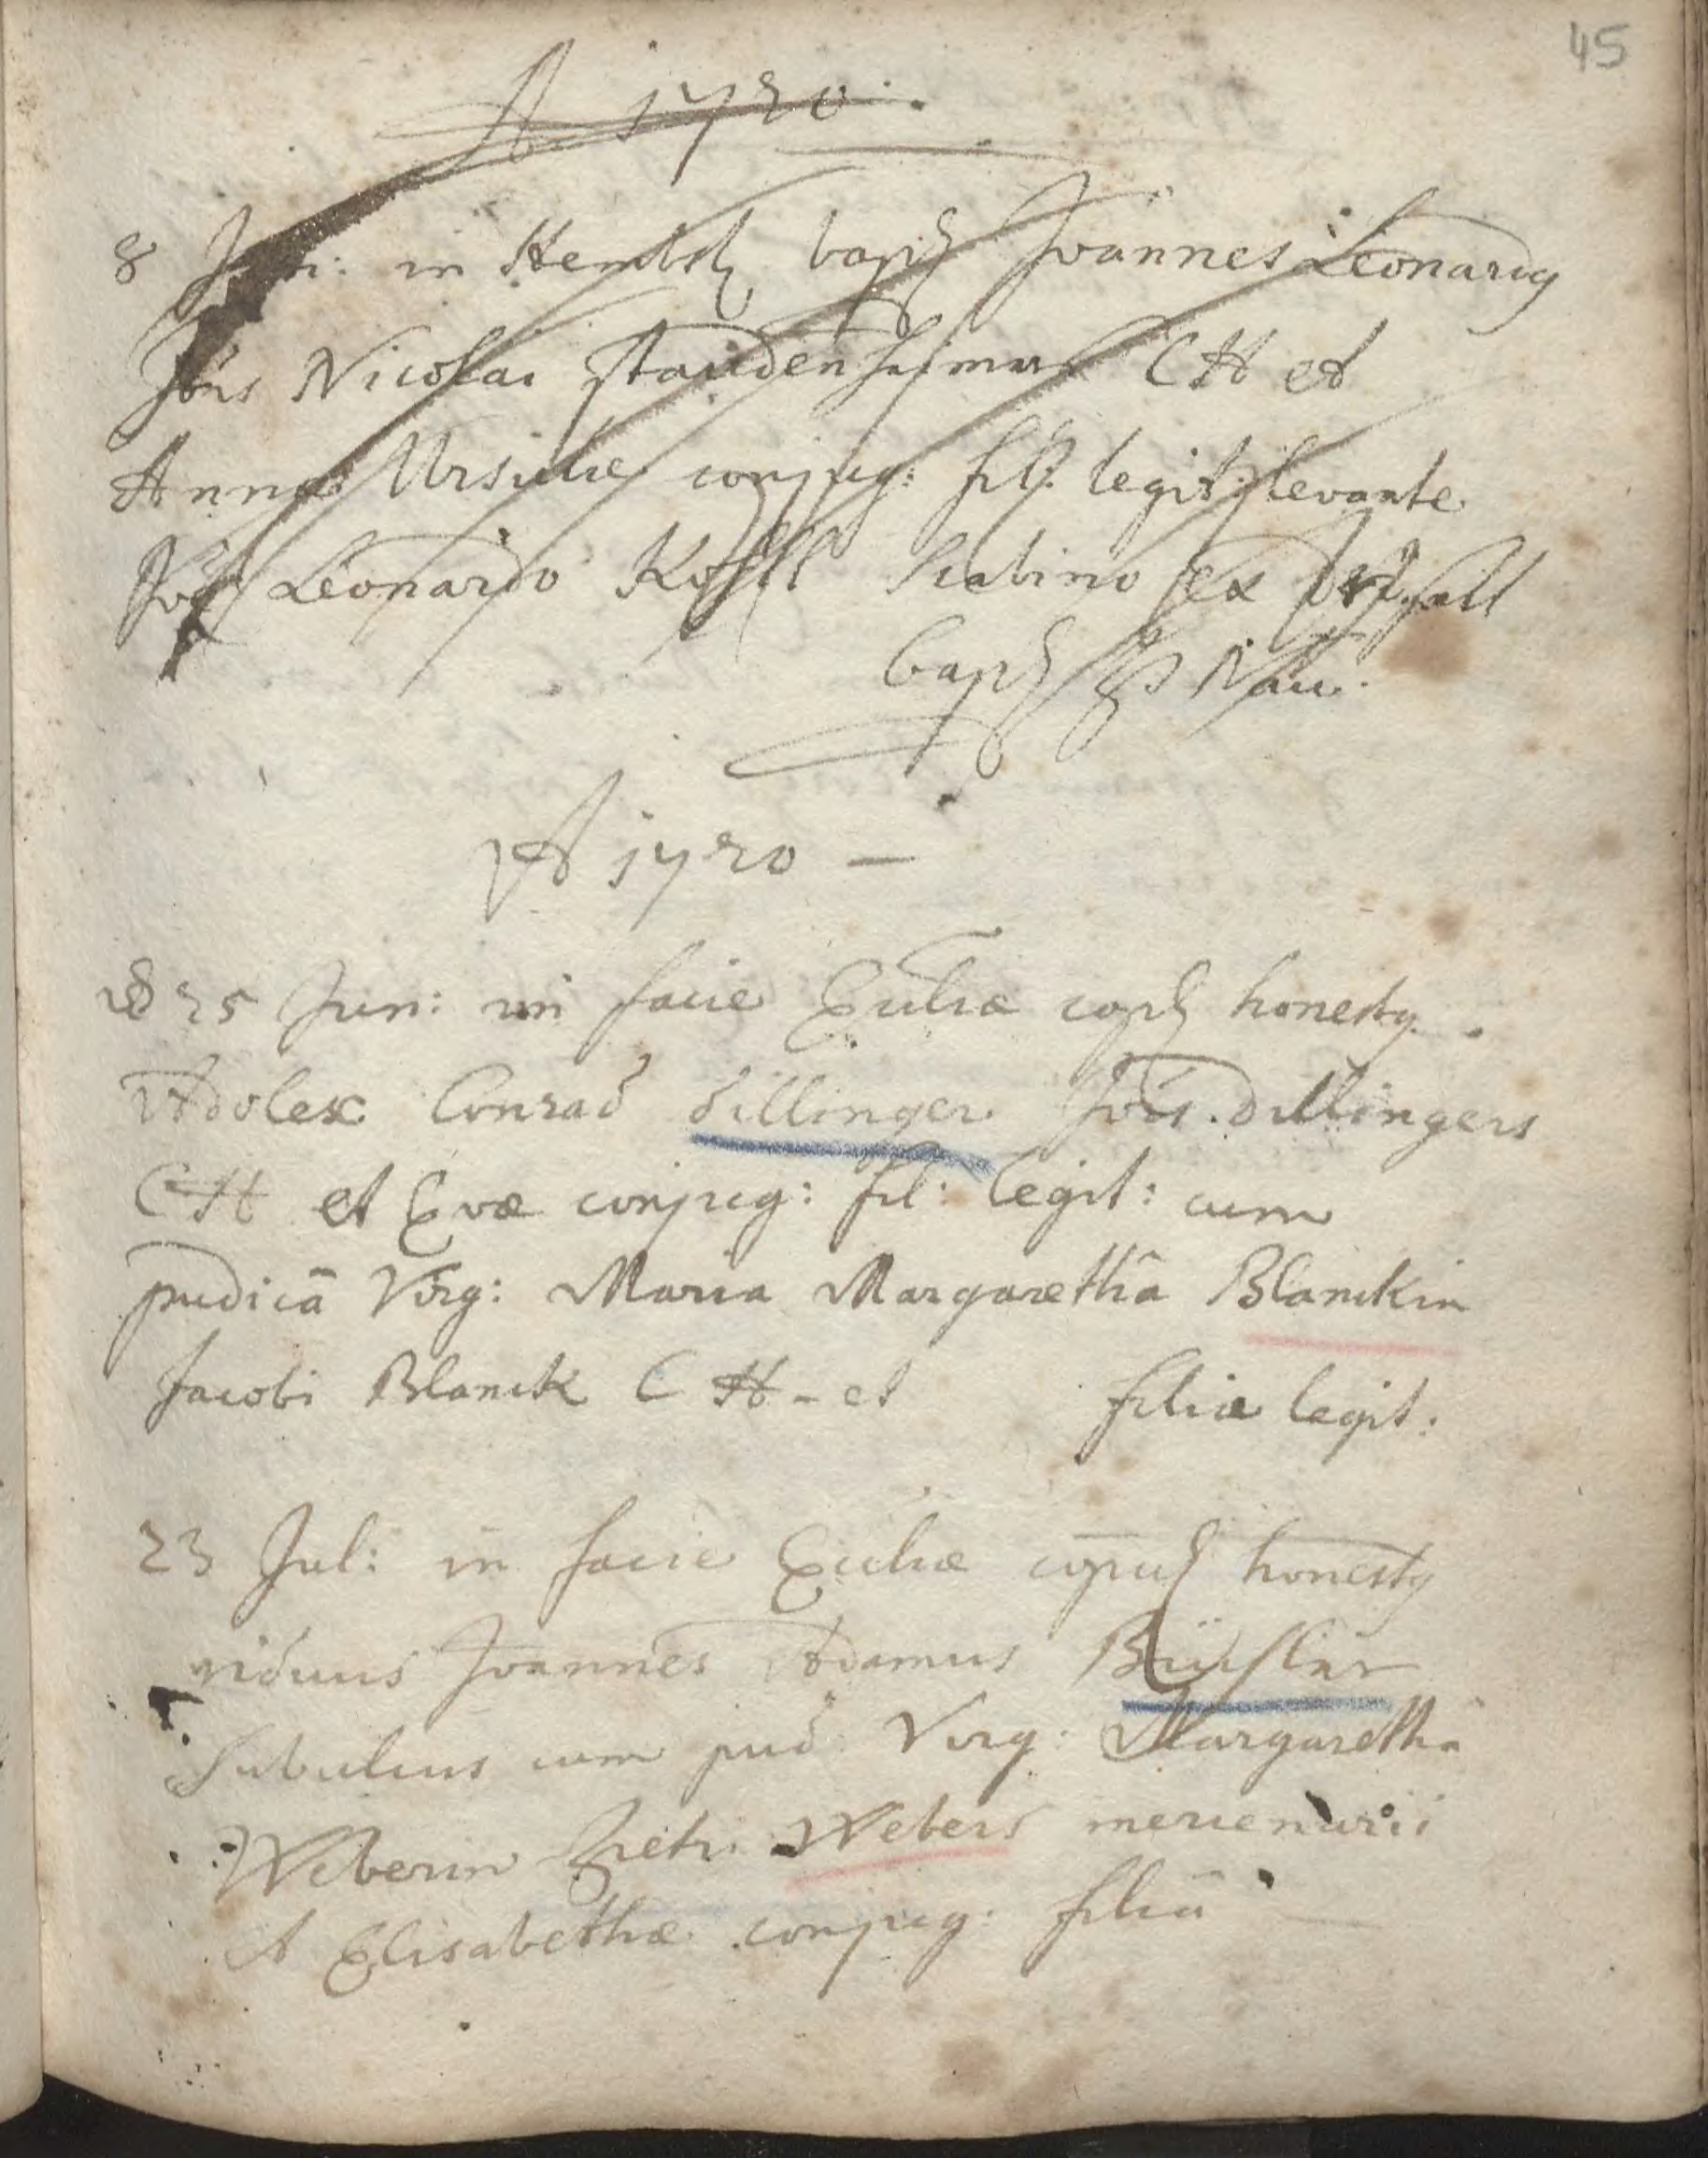 45
A 1720.
8 Jan: in Hembsb bapt Joannes Leonardg
Jois Nicolai Staudenheimer CH et
Annæ Ursulæ conjug: fil: legit: levante
Leonardo Scabino ex
bapt P Nau.
A 1720 –
25 Jun: in facie Eccliæ copl honestg
Adolex Conrad dillinger Jois. dillingers
CH et Evæ conjug: fil: legit: cum
pudicā Virg: Maria Margarethâ Blanckin
Jacobi Blanck CH – et filiæ legit:
23 Jul: in facie Eccliæ copul honestg
viduus Joannes Adamus
Subulcus cum pud Virg: Margarethâ
Weberin Petri Webers mercenarii
et Elisabethæ conjug: filiâ